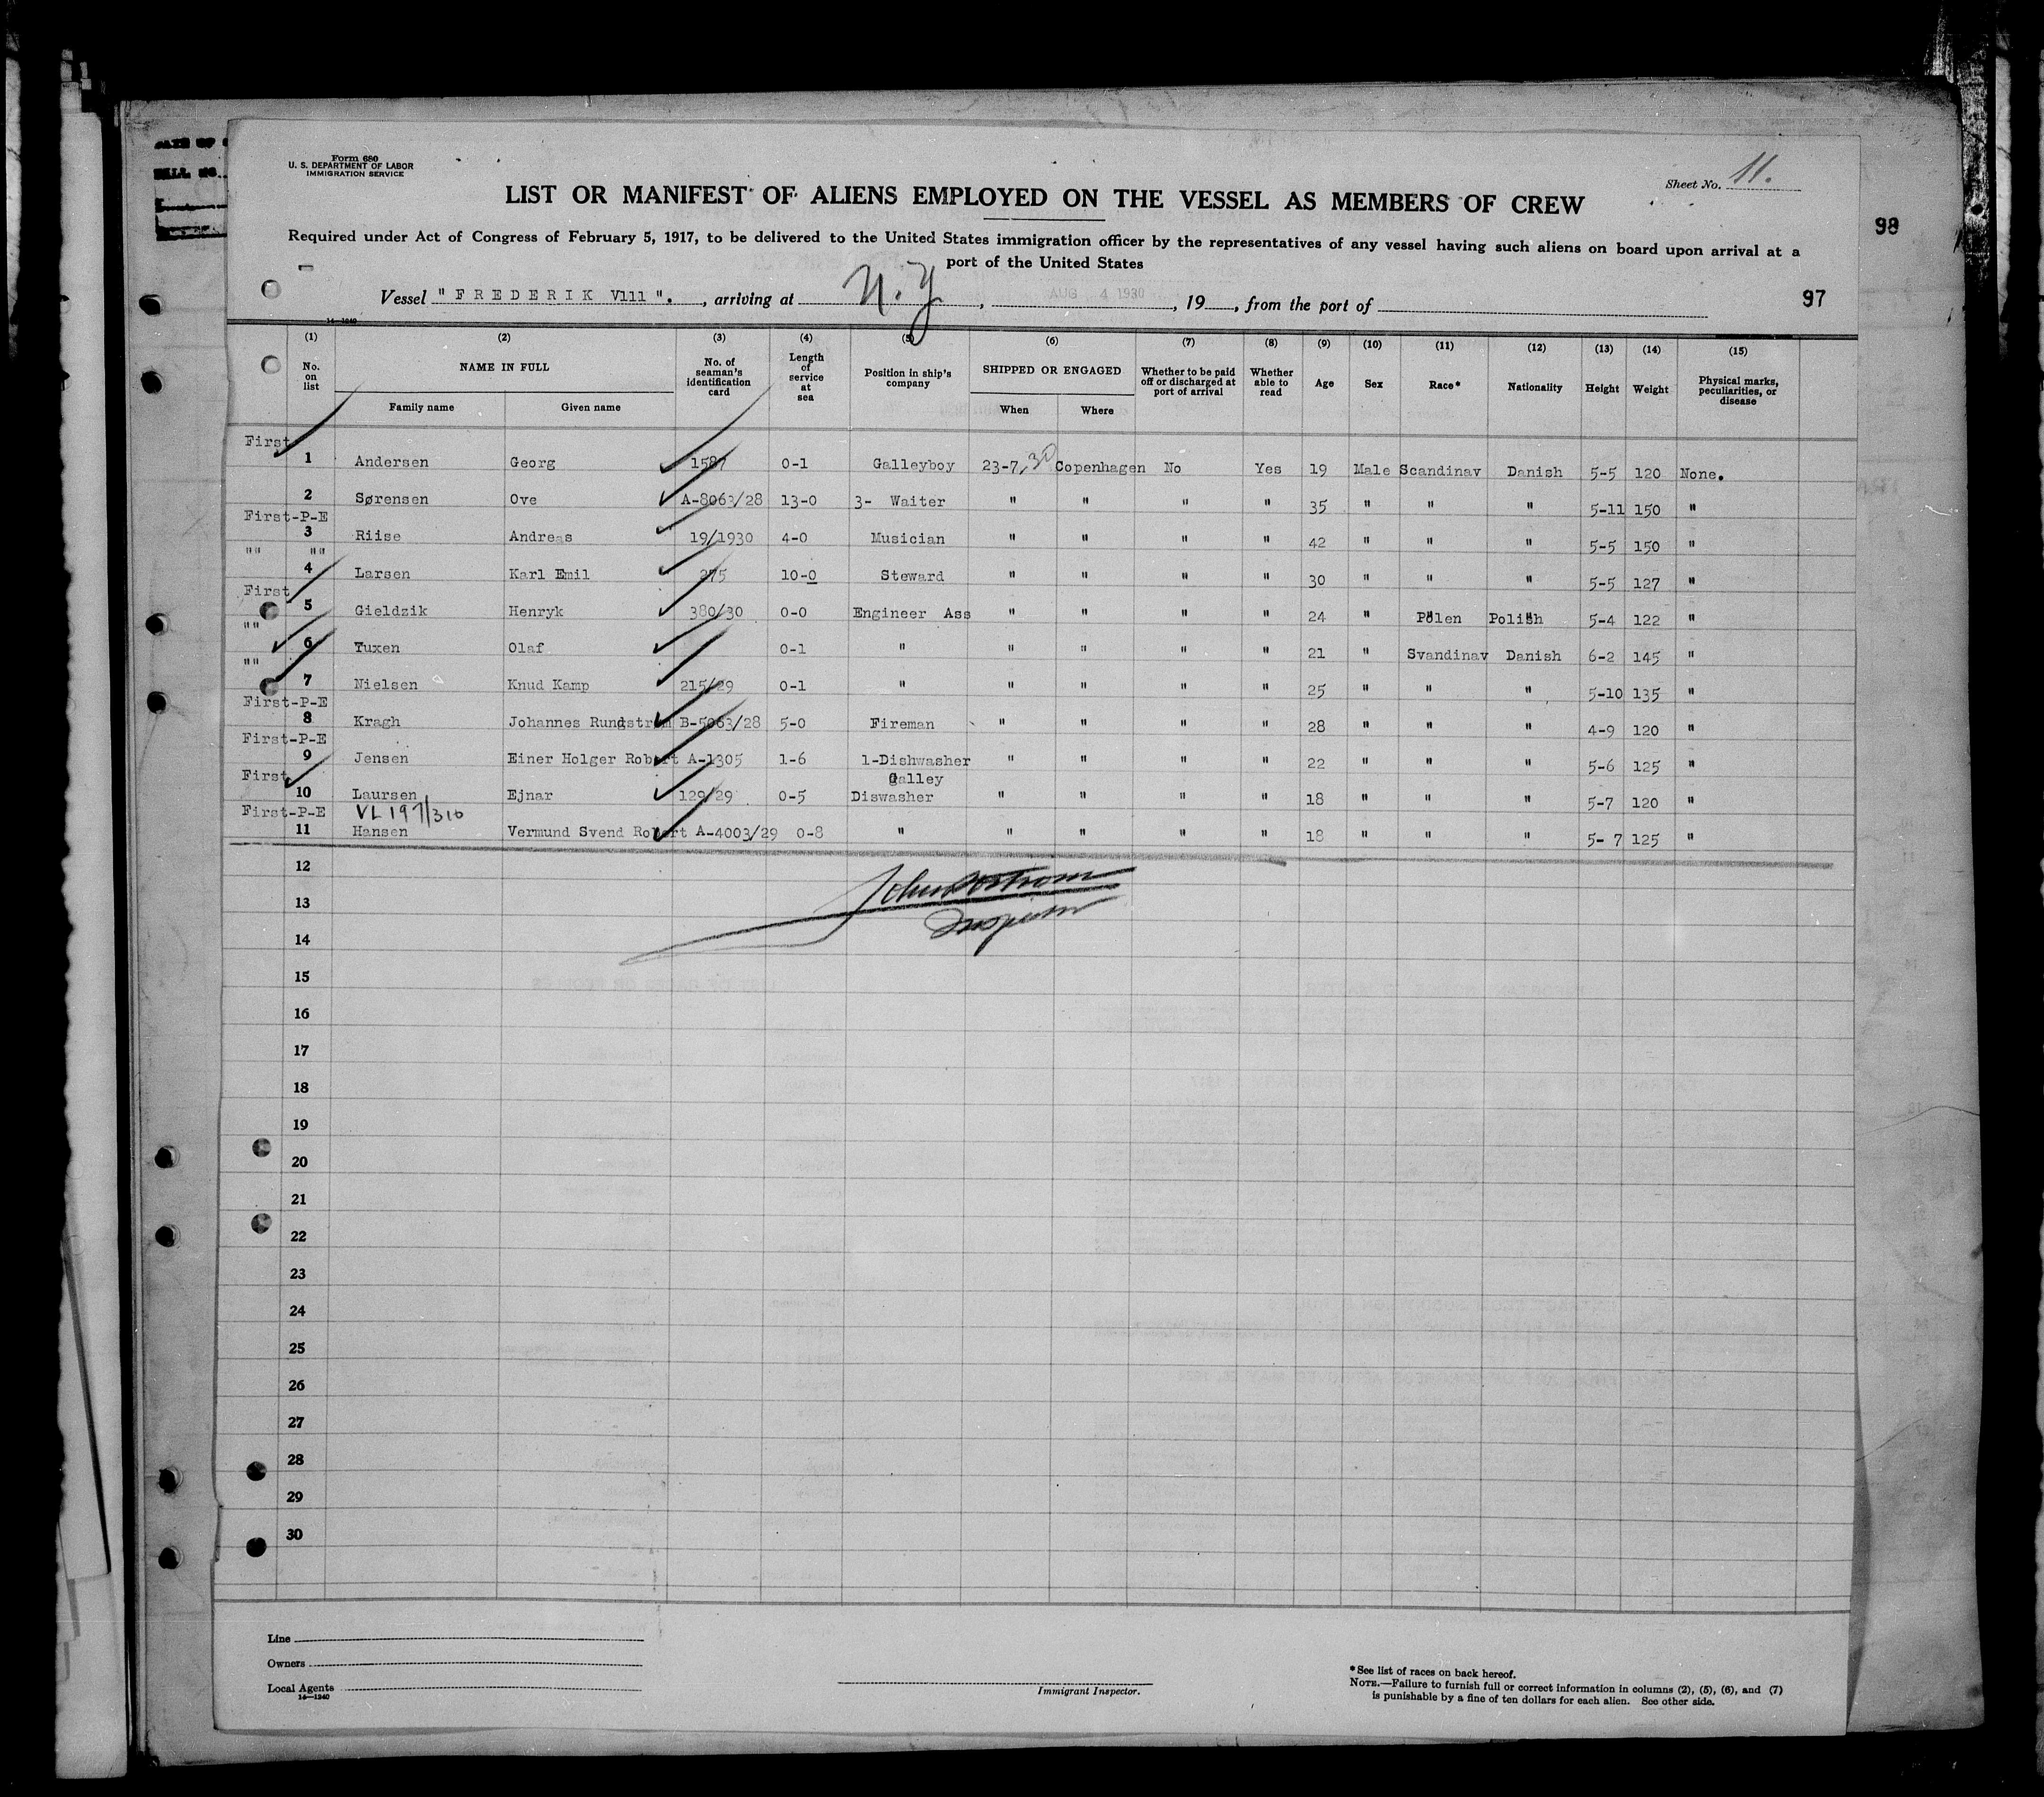 Form 680
U. S. DEPARTMENT OF LABOR
IMMIGRATION SERVICE
Sheet No. 11.
LIST OR MANIFEST OF ALIENS EMPLOYED ON THE VESSEL AS MEMBERS OF CREW
98
Required under Act of Congress of February 5, 1917, to be delivered to the United States immigration officer by the representatives of any vessel having such aliens on board upon arrival at a
port of the United States
Vessel " FREDERIK V111 ". , arriving at N.Y. , AUG 4 1930 , 19 , from the port of
97
14—1240
(1) (2) (3) (4) (5) (6) (7) (8) (9) (10) (11) (12) (13) (14) (15)
No. on list NAME IN FULL No. of seaman's identification card Length of service at sea Position in ship's company SHIPPED OR ENGAGED Whether to be paid off or discharged at port of arrival Whether able to read Age Sex Race* Nationality Height Weight Physical marks, peculiarities, or disease
Family name Given name When Where
First
1 Andersen Georg 1587 0-1 Galleyboy 23-7,30 Copenhagen No Yes 19 Male Scandinav Danish 5-5 120 None.
2 Sørensen Ove A-8063/28 13-0 3- Waiter " " " " 35 " " " 5-11 150 "
First-P-E
3 Riise Andreas 19/1930 4-0 Musician " " " " 42 " " " 5-5 150 "
"" ""
4 Larsen Karl Emil 275 10-0 Steward " " " " 30 " " " 5-5 127 "
First
5 Gieldzik Henryk 380/30 0-0 Engineer Ass " " " " 24 " Polen Polish 5-4 122 "
""
6 Tuxen Olaf 0-1 " " " " " 21 " Svandinav Danish 6-2 145 "
""
7 Nielsen Knud Kamp 215/29 0-1 " " " " " 25 " " " 5-10 135 "
First-P-E
8 Kragh Johannes Rundstrøm B-5063/28 5-0 Fireman " " " " 28 " " " 4-9 120 "
First-P-E
9 Jensen Einer Holger Robert A-1305 1-6 1-Dishwasher " " " " 22 " " " 5-6 125 "
First Galley
10 Laursen Ejnar 129/29 0-5 Diswasher " " " " 18 " " " 5-7 120 "
First-P-E VL 197/310
11 Hansen Vermund Svend Robert A-4003/29 0-8 " " " " " 18 " " " 5- 7 125 "
12
Inspector
13
14
15
16
17
18
19
20
21
22
23
24
25
26
27
28
29
30
Line
Owners
Local Agents
14—1240
Immigrant Inspector.
*See list of races on back hereof.
NOTE.—Failure to furnish full or correct information in columns (2), (5), (6), and (7)
is punishable by a fine of ten dollars for each alien. See other side.